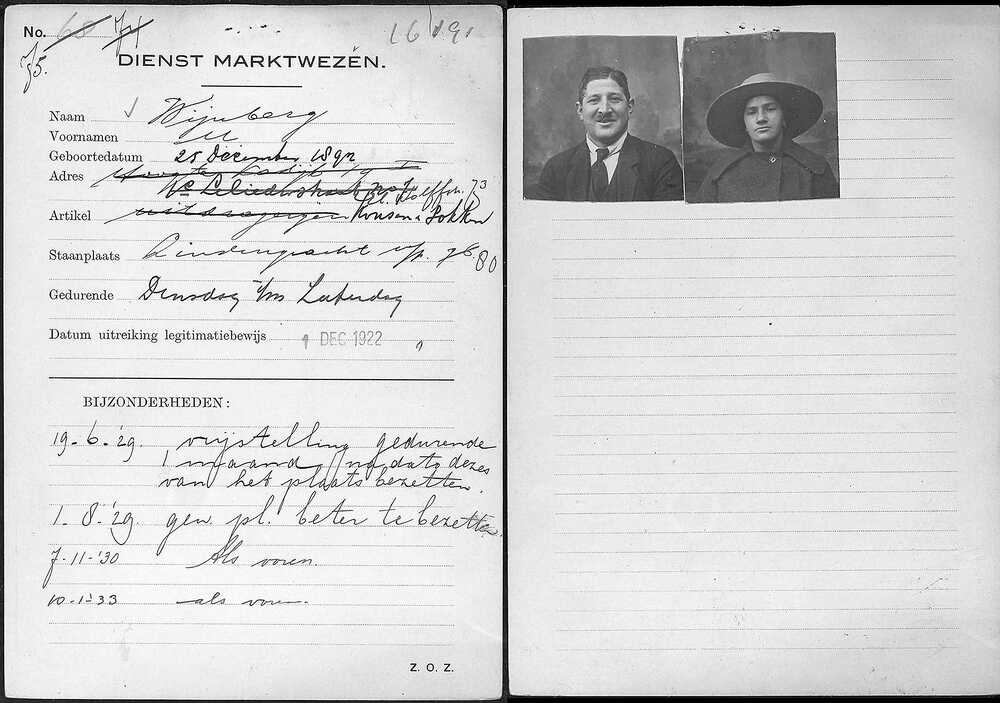 No. 68 71 16191
75.
DIENST MARKTWEZÉN.
Naam Wijnberg
Voornamen M
Geboortedatum 25 December 1892
Adres
73
Artikel Kousen & Sokken
Staanplaats Lindengracht 78. 80
Gedurende Dinsdag t/m Zaterdag
Datum uitreiking legitimatiebewijs 1 DEC 1922
BIJZONDERHEDEN:
19-6-'29. vrijstelling gedurende
1 maand na dato dezes
van het plaats bezetten.
1-8-'29. gew. pl. beter te bezetten.
7-11-'30 Als voren.
10-1-'33 als voren.
Z. O. Z.